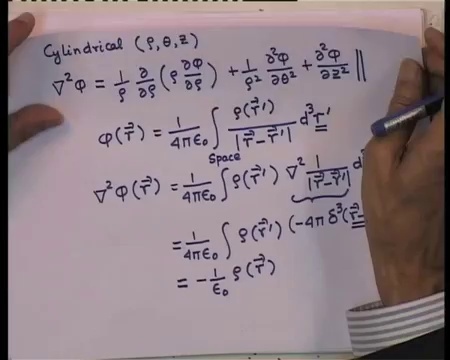 Cylindrical (ρ, θ, z)
∇²φ = 1/ρ ∂/∂ρ (ρ ∂φ/∂ρ) + 1/ρ² ∂²φ/∂θ² + ∂²φ/∂z² ||
φ(r⃗) = 1/4πε₀ ∫ ρ(r⃗')/|r⃗-r⃗'| d³r'
Space
∇²φ(r⃗) = 1/4πε₀ ∫ ρ(r⃗') ∇² 1/|r⃗-r⃗'| d³
= 1/4πε₀ ∫ ρ(r⃗') (-4π δ³(r⃗-
= -1/ε₀ ρ(r⃗)